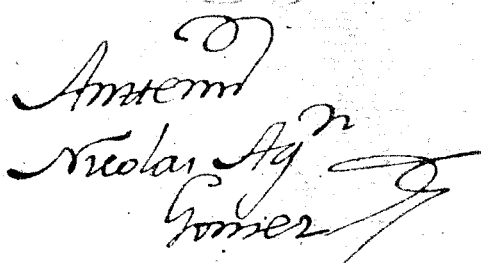 Antemi
Nicolas Agn
Gomez